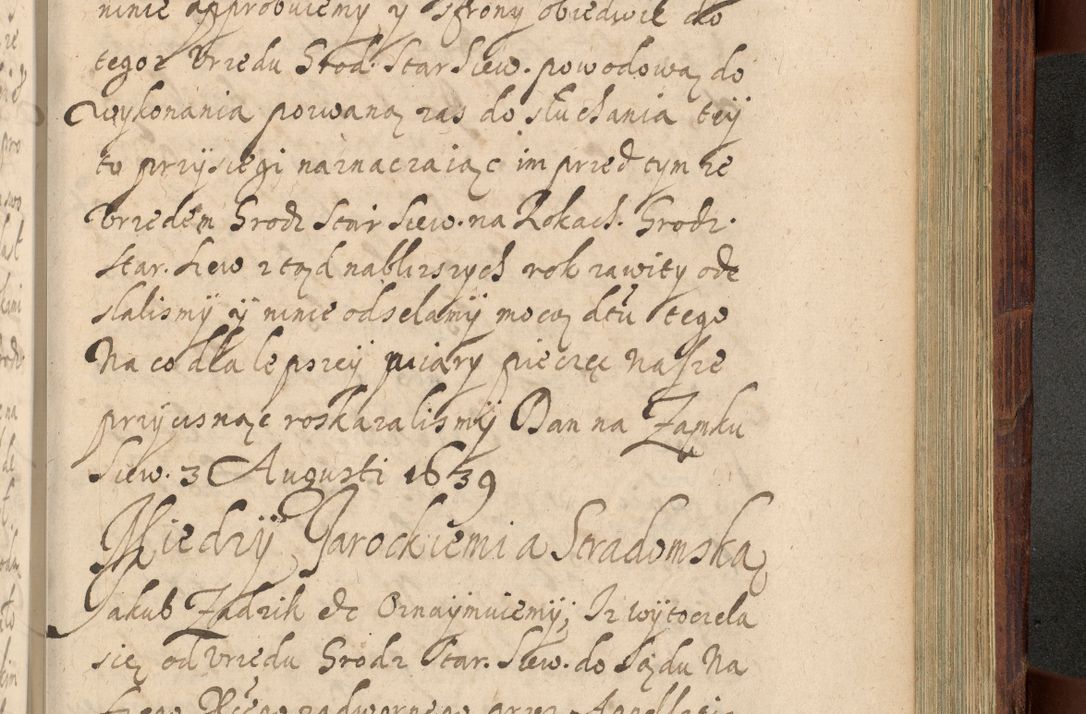 ninie approbuiemy y strony obiedwie do
tegoz Vrzedu Grod. Star Siew. powodową do
wykonania pozwaną zas do słuchania teÿ
to przÿsiegi naznaczaiąc im przed tym ze
Vrzedem Grodz Star Siew. na Rokach. Grodz.
Star. Siew ztąd nablizszych rok zawity ode
slalismÿ ÿ ninie odselamÿ mocą dtu tego
Na co dla lepszeÿ wiary pieczęć nasze
przÿcisnąc roskazalismÿ Dan na Zamku
Siew. 3 Augusti 1639
Miedzÿ Jarockiemi a Stradomską
Jakub Zadzik etc Oznaÿmuiemÿ; Iz wÿtoczela
się od Vrzedu Grodz Star. Siew. do Sądu Na
zadwornego przez Appellatią